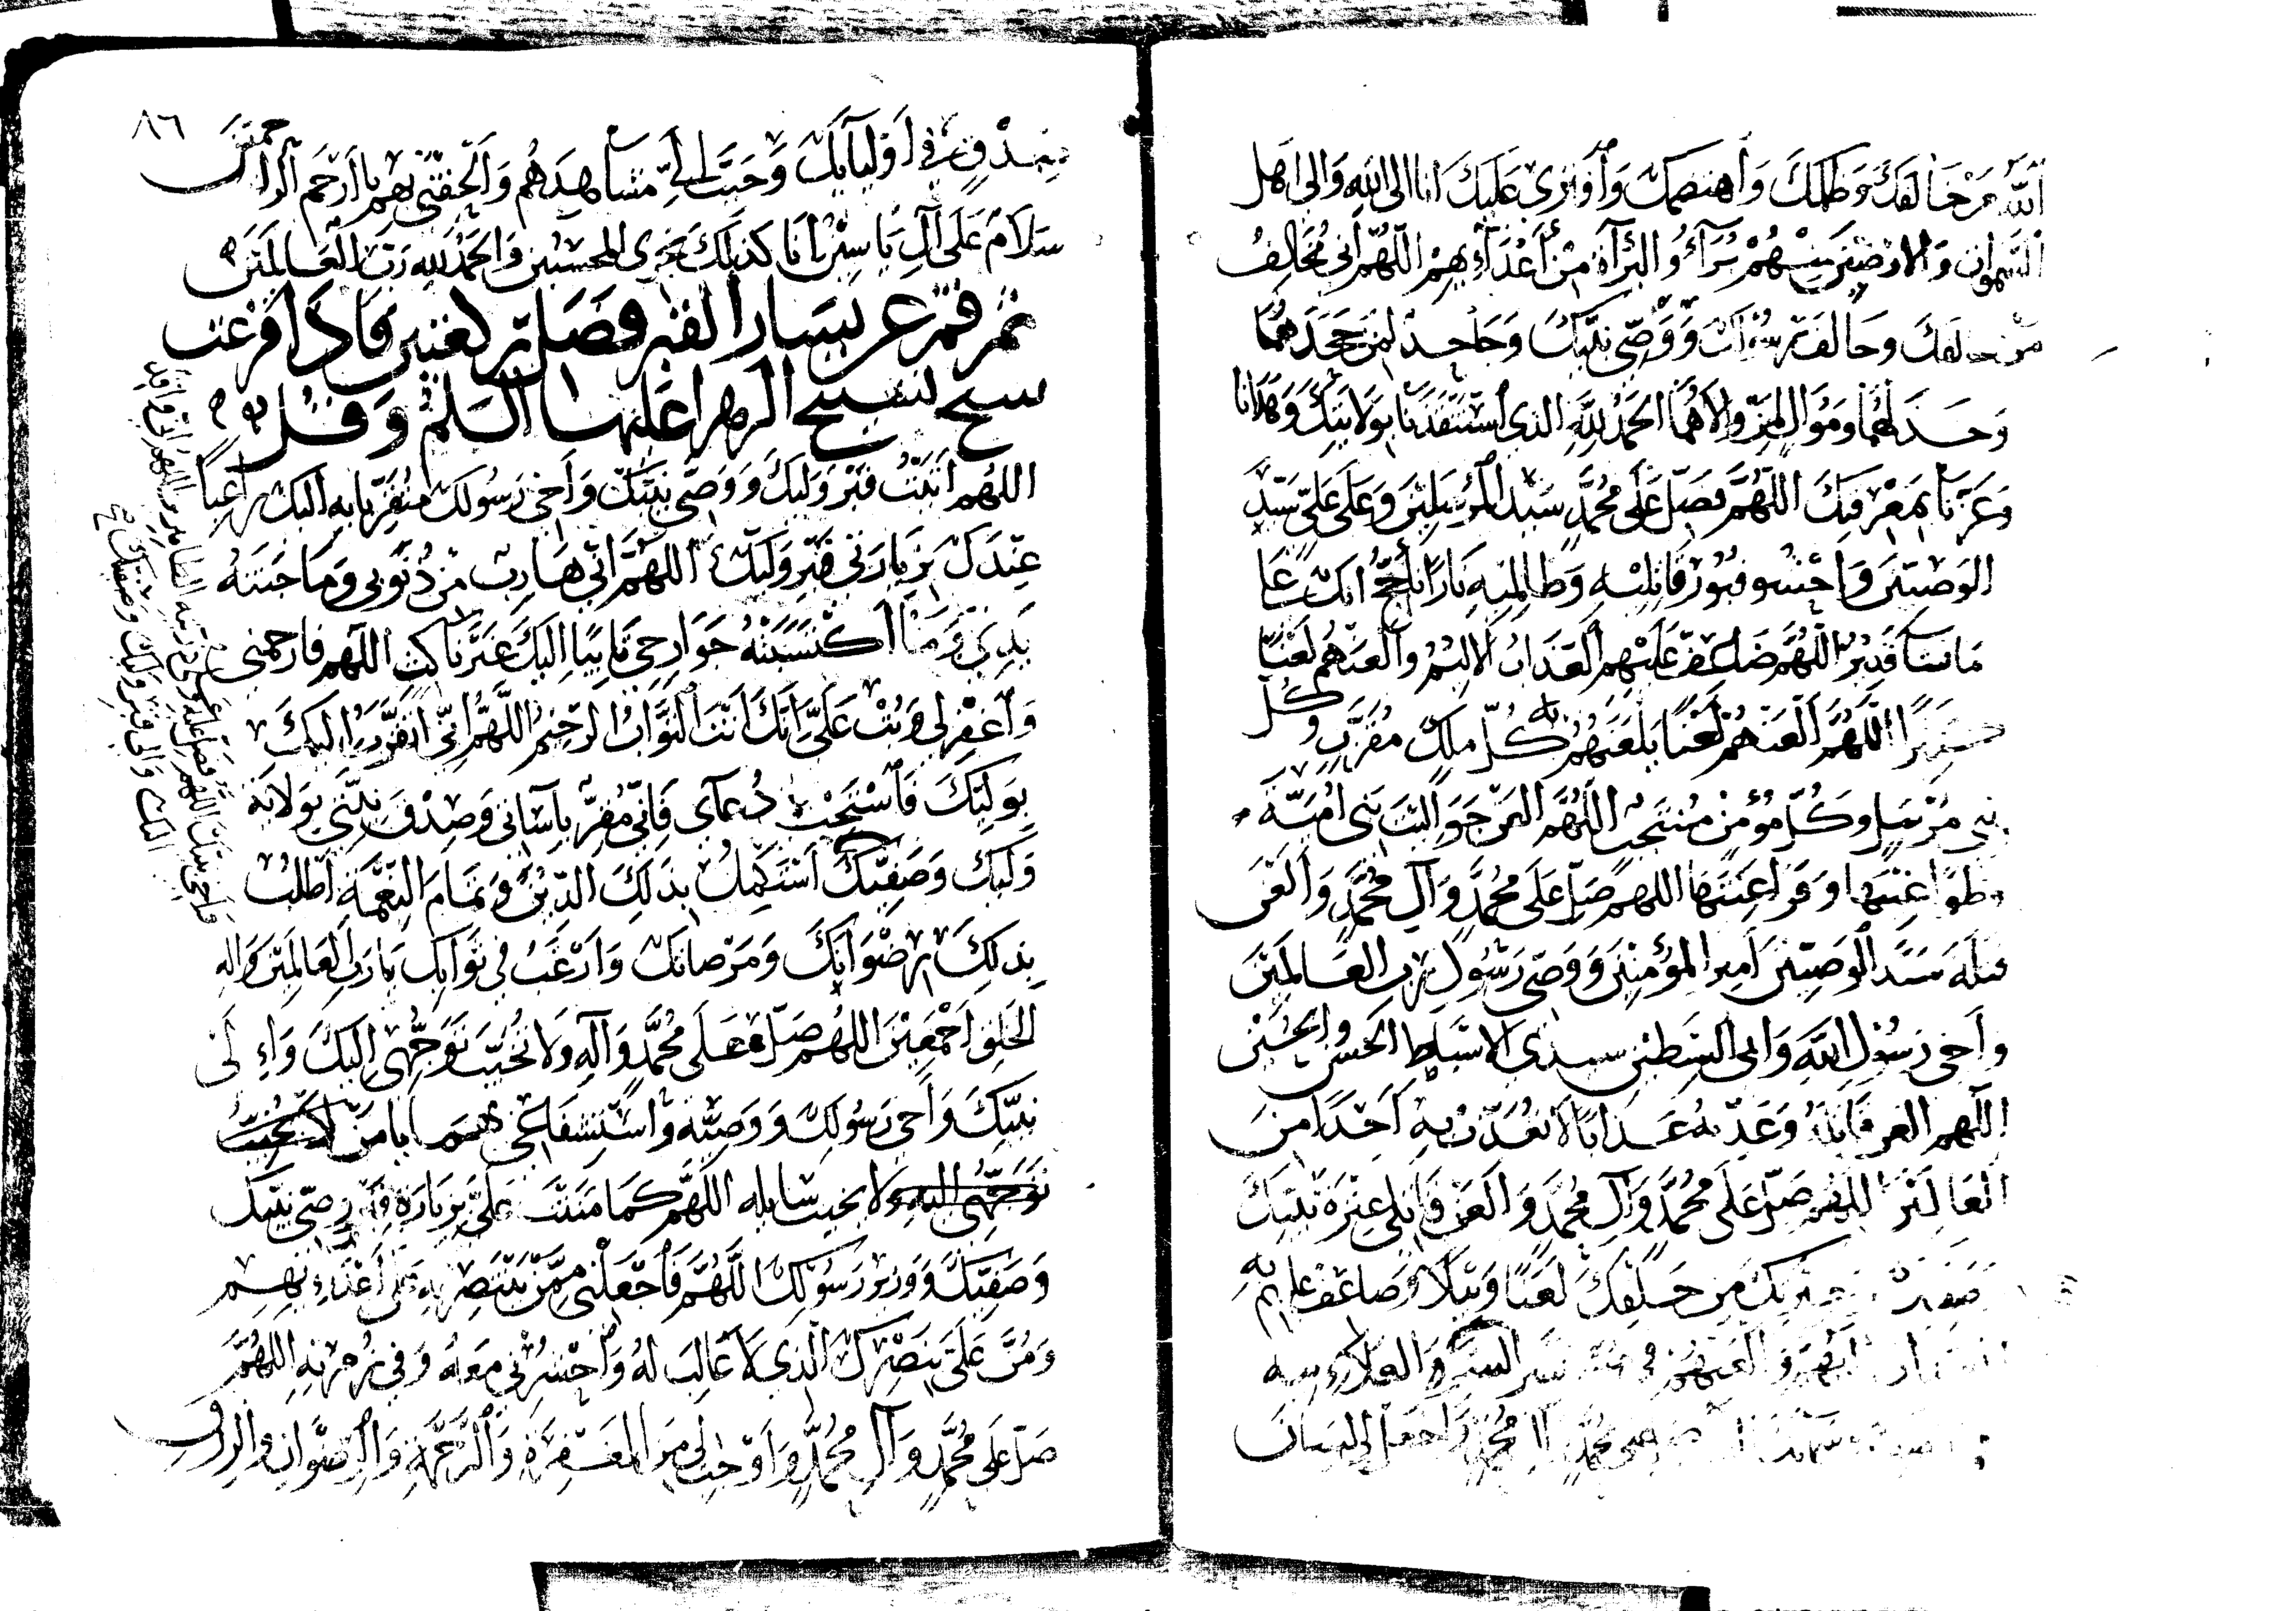 الله من خالفك وظلمك واهتضمك وافترى عليك انا الى الله والى اهل
السموات والارضين منهم براء والبراة من أعدائهم اللهم اني مخالف
من خالفك وخالف رسولك ووصي نبيك وجاحد لمن جحدهما
وخذلهما وموال لمن والاهما الحمد لله الذي استنقذنا بولايتك وهدانا
وعزنا بمعرفتك اللهم فصل على محمد سيد المرسلين وعلى علي سيد
الوصيين واحش قبور قاتليه وظالميه نارا تأجج انك على
ما تشا قدير اللهم ضاعف عليهم العذاب الاليم والعنهم لعنا
كثيرا اللهم العنهم لعنا يلعنهم به كل ملك مقرب وكل
نبي مرسل وكل مؤمن منتجب اللهم العن جوابيت بني امية
وطواغيتها وفراعنتها اللهم صل على محمد وآل محمد والعن
قتلة سيد الوصيين امير المؤمنين ووصي رسول رب العالمين
واخي رسول الله وابي السبطين سيدي الاسباط الحسن والحسين
اللهم العن قاتله وعذبه عذابا لا تعذب به احدا من
العالمين اللهم صل على محمد وآل محمد والعن قاتلي عترة نبيك
من خلقك لعنا وبيلا وضاعف عليهم به
والعنهم في السر والعلانية
محمد واجعل لي لسان
٨٦
صدق في أوليايك وحبب الي مشاهدهم والحقني بهم يا ارحم الراحمين
سلام على آل ياسين انا كذلك نجزى المحسنين والحمد لله رب العالمين
ثم قم عن يسار القبر فصل ركعتين فاذا فرغت
سبح تسبيح الزهرا عليها السلم وقل
اللهم أتيت قبر وليك ووصي نبيك وأخي رسولك متقربا به اليك راغبا
عندك بزيارتي قبر وليك اللهم اني هارب من ذنوبي وما جنته
يدي وما اكتسبته جوارحي تايبا اليك عز ناكث اللهم فارحمني
واغفر لي وتب علي انك انت التواب الرحيم اللهم اني اتقرب اليك
بوليك فاستجب دعاي فاني مقر باساتي وصدق نيتي بولاية
وليك وصفيك استكمل بذلك الدين وتمام النعمة اطلب
بذلك رضوانك ومرضاتك وارغب في ثوابك يا رب العالمين واله
الخلق اجمعين اللهم صل على محمد وآله ولا تخيب توجهي اليك والى
نبيك واخي رسولك ووصيه واستشفاعي بهما يا من لا تخيب
توجهي اليه ولا يخيب سايله اللهم كما مننت علي بزيارة قبر وصي نبيك
وصفيك ووزير رسولك اللهم فاجعلني ممن ينتصر به على أعدائهم
ومن علي بنصرك الذي لا غالب له واحشرني معه وفي زمرته اللهم
صل على محمد وآل محمد واوجب لي من المغفرة والرحمة والرضوان والرزق